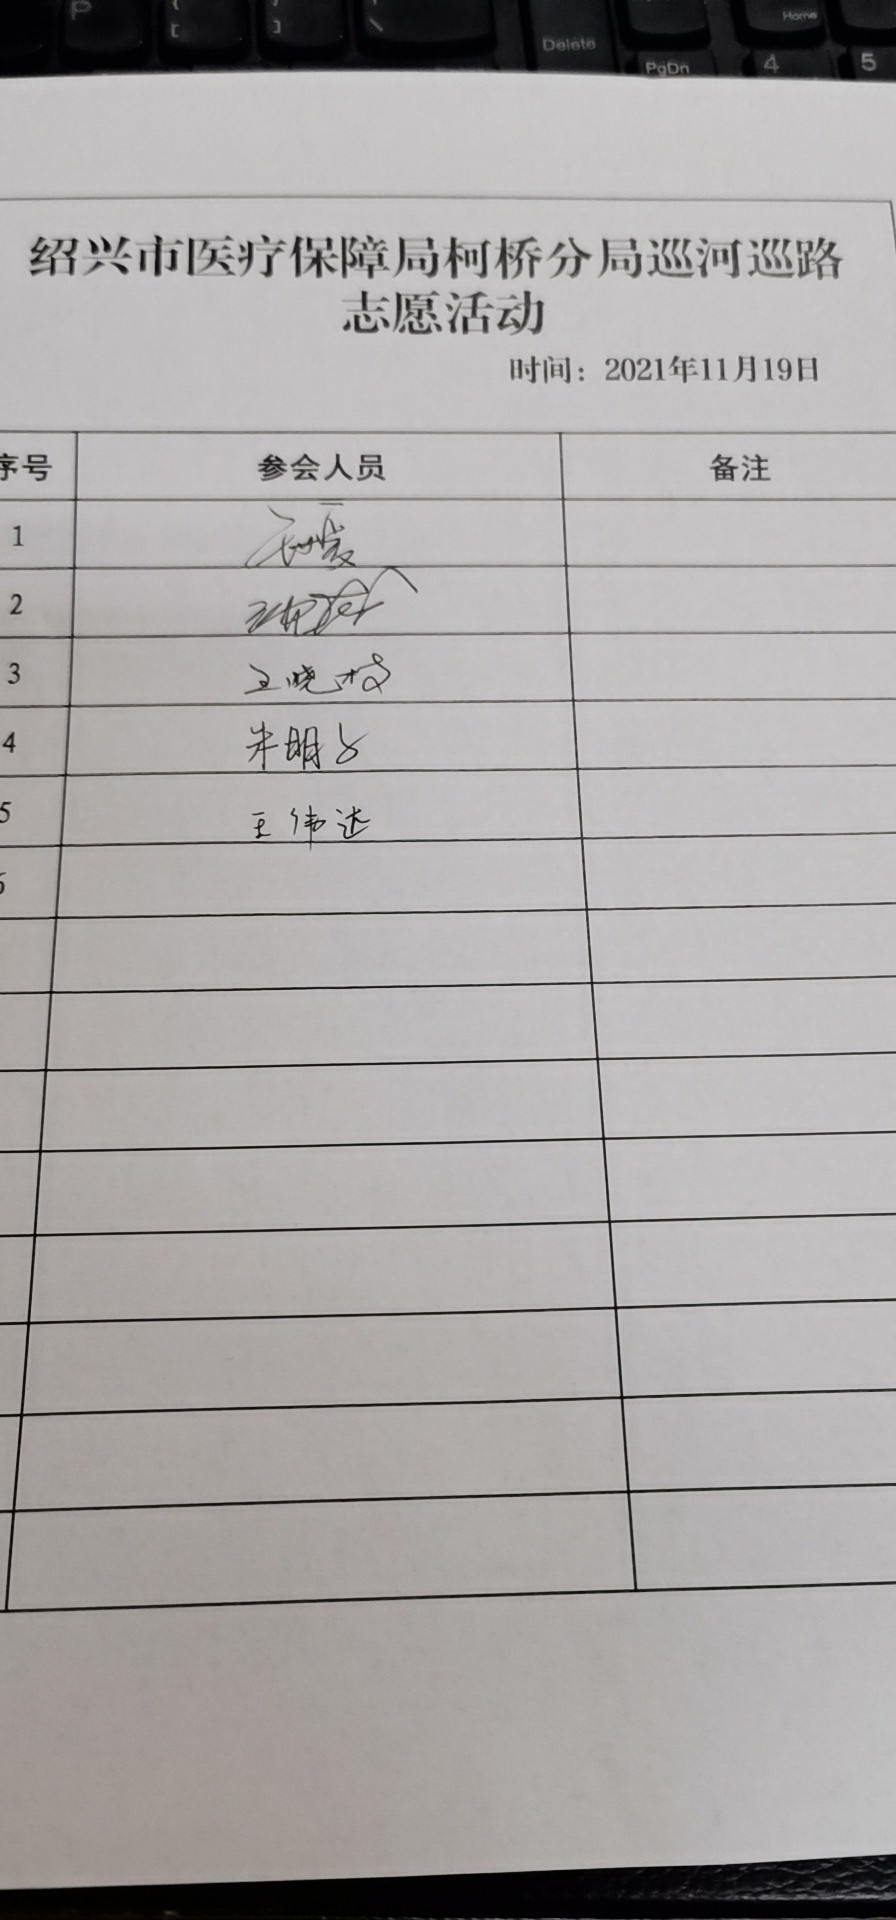 P
[
]
\
Delete
Home
PgDn
4
5
绍兴市医疗保障局柯桥分局巡河巡路
志愿活动
时间：2021年11月19日
序号 参会人员 备注
1
2
3 王晓
4 朱明
5 王伟达
6